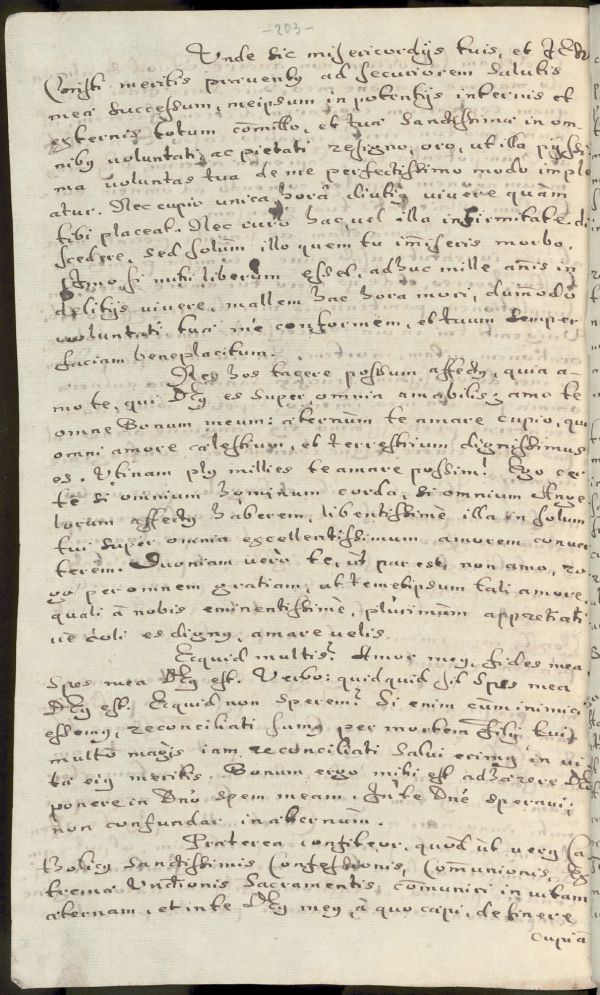 -203-
Unde sic misericordijs tuis, et JESV
Christi meritis præventus ad securiorem salutis
meæ successum, meipsum in potentijs internis et
externis totum com̃itto, et tuæ Sanctissimæ in om-
nibus voluntati, ac pietati resigno, oro, ut illa pijssi-
ma voluntas tua de me perfectissimo modo imple
atur. Nec cupio unica horâ diutius vivere quàm
tibi placeat. Nec curo hac, vel illa infirmitate di
scedere, sed solùm illo quem tu im̃iseris morbo.
Imo si mihi liberum esset, adhuc mille annis in
delitijs vivere, mallem hac hora mori, dum̃odo
voluntati tuæ me conformem, et tuum semper
faciam beneplacitum.
Nec hos tacere possum affectus, quia a-
mo te, qui Deus es super omnia amabilis; amo te
omne Bonum meum: æternùm te amare cupio, qui
omni amore cælestium, et terrestrium dignissimus
es. Utinam plus millies te amare possim! Ego cer
te si omnium hominum corda, si omnium Ange
lorum affectus haberem, libentissimè illa in solum
tui super omnia excellentissimum amorem conver
terem. Quoniam verò te, ut par est, non amo, ro
go per omnem gratiam, ut temetipsum tali amore,
quali à nobis eminentissimè, plurimùm appretiati
vè coli es dignus, amare velis.
Ecquid multis? Amor meus, fides mea
spes mea Deus est. Verbo: quidquid sit spes mea
Deus est. Ecquid non sperem? Si enim cum inimici
essemus, reconciliati sumus per mortem Filij tui;
multò magis iam reconciliati salvi erimus in vi
ta eius meritis. Bonum ergo mihi est adhærere Deo
ponere in Dño spem meam. In te Dñe speravi;
non confundar in æternùm.
Præterea confiteor, quòd ut verus Ca
tholicus Sanctissimis Confessionis, Communionis, Ex
tremæ Unctionis Sacramentis com̃uniri in vitam
æternam, et in te Deus meus, à quo cæpi, desinere
cupiã